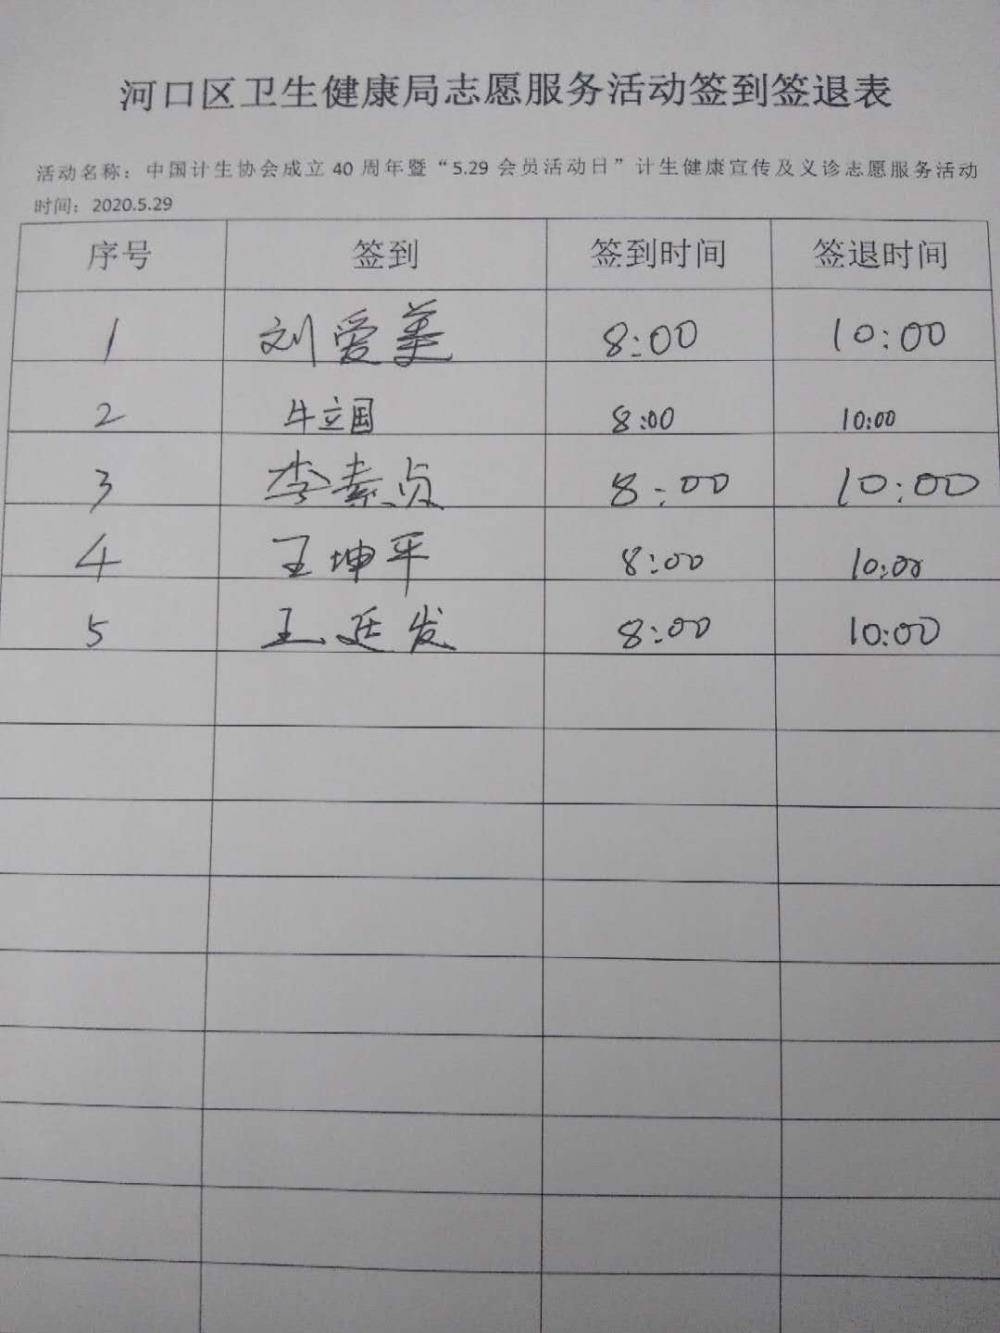 河口区卫生健康局志愿服务活动签到签退表
活动名称：中国计生协会成立 40 周年暨“5.29 会员活动日”计生健康宣传及义诊志愿服务活动
时间：2020.5.29
序号 签到 签到时间 签退时间
1 刘爱美 8:00 10:00
2 牛立国 8:00 10:00
3 李素贞 8:00 10:00
4 王坤平 8:00 10:00
5 王廷发 8:00 10:00